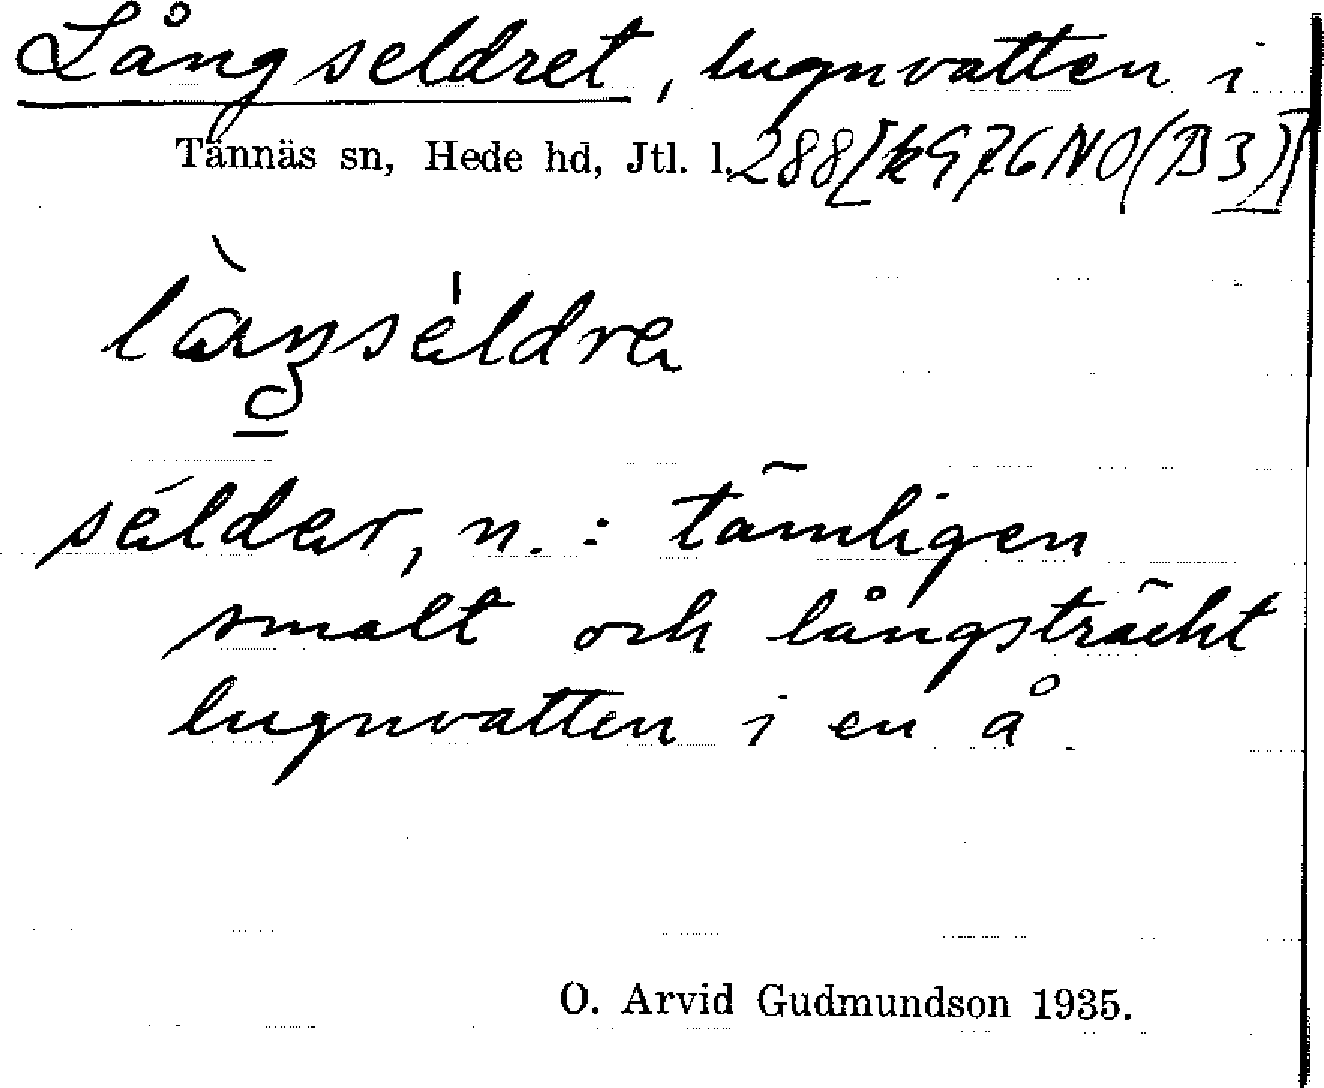 Långseldret, lugnvatten i
Tännäs sn, Hede hd, Jtl. l. 288
sélder, n. : tämligen
smalt och långsträckt
lugnvatten i en å
O. Arvid Gudmundson 1935.